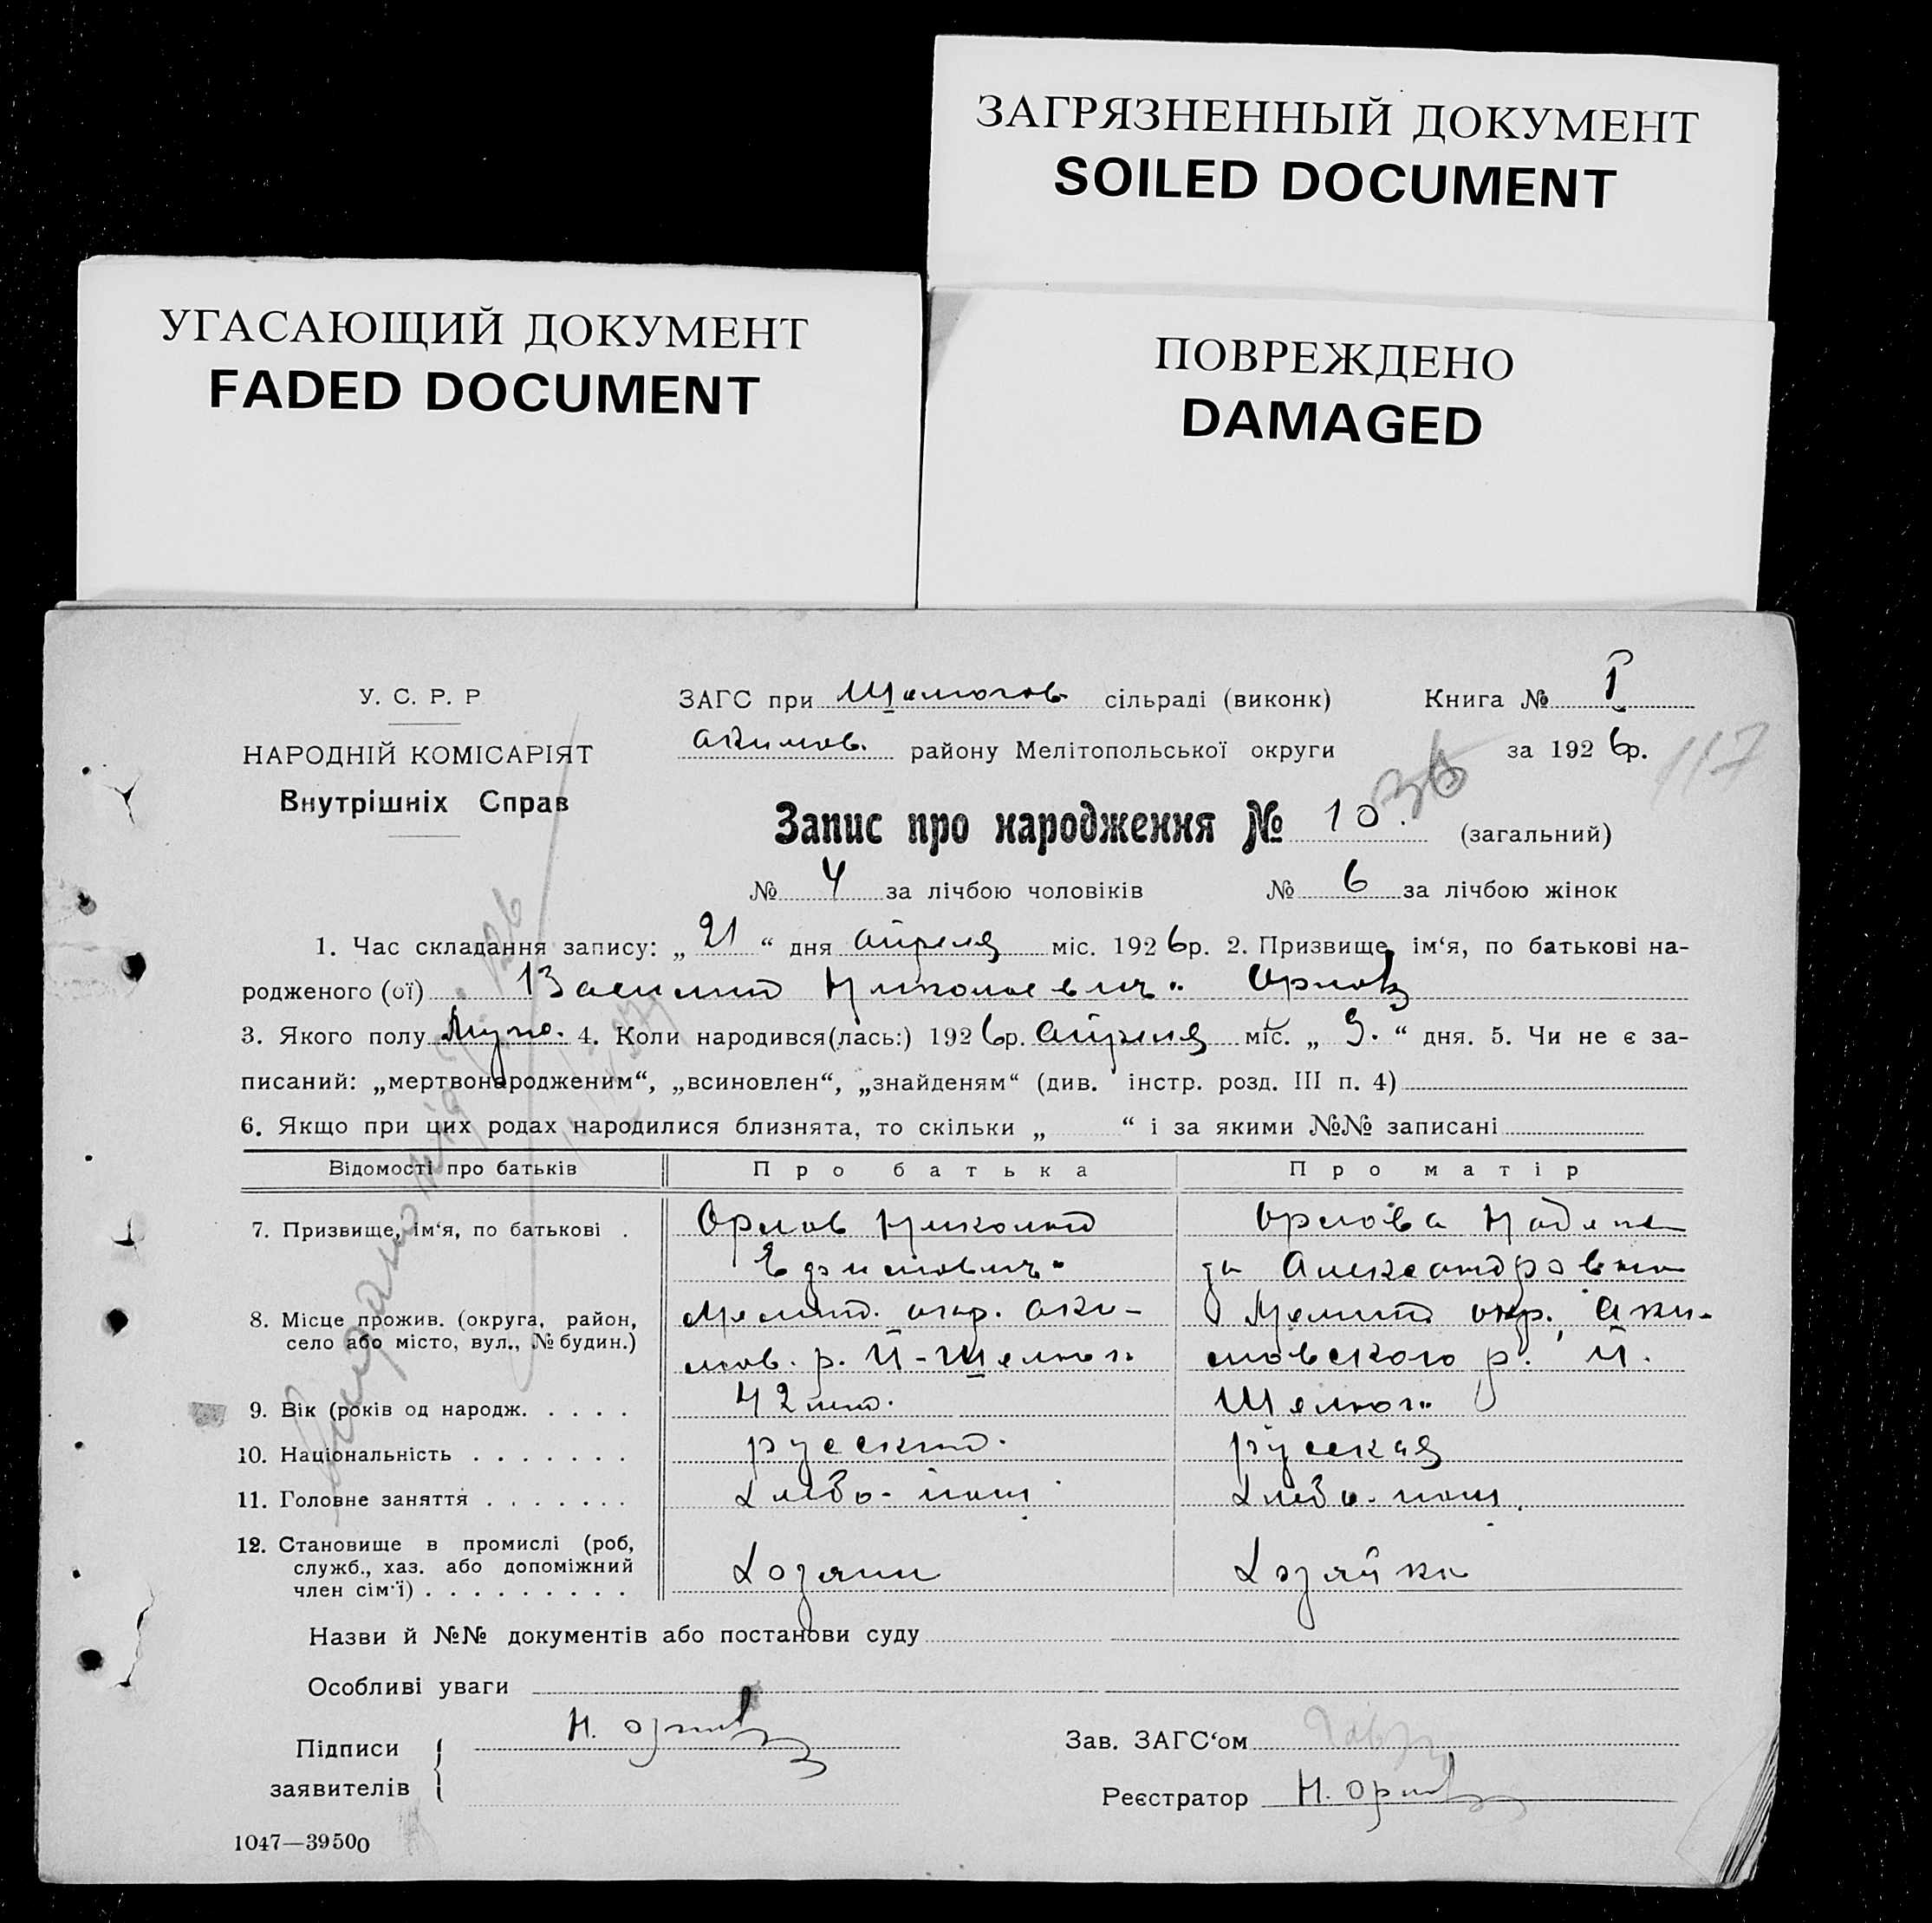 ЗАГРЯЗНЕННЫЙ ДОКУМЕНТ
SOILED DOCUMENT
УГАСАЮЩИЙ ДОКУМЕНТ
FADED DOCUMENT
ПОВРЕЖДЕНО
DAMAGED
У. С. Р. Р
НАРОДНІЙ КОМІСАРІЯТ
Внутрішніх Справ
ЗАГС при сільраді (виконк)
Книга № I
Акимов. району Мелітопольської округи за 1926р.
117
36
Запис про народження № 10. (загальний)
№ 4 за лічбою чоловіків № 6 за лічбою жінок
1. Час складання запису: „ 21 “ дня апреля міс. 1926р. 2. Призвище, ім‘я, по батькові на-
родженого (ої) Василий Николаевич Орлов
3. Якого полу Муж. 4. Коли народився(лась:) 1926р. апреля міс. „ 9. “ дня. 5. Чи не є за-
писаний: „мертвонародженим“, „всиновлен“, „знайденям“ (див. інстр. розд. III п. 4)
6. Якщо при цих родах народилися близнята, то скільки „ “ і за якими №№ записані
Відомості про батьків Про батька Про матір
7. Призвище, ім‘я, по батькові . Орлов Николай Орлова Надеж
Ефимович да Александровна
8. Місце прожив. (округа, район, Мелит. окр. Аки- Мелит окр. Аки-
село або місто, вул., № будин.) мов. р. Н-Шелюги мовского р. Н.
9. Вік (років од народж. . . . . 42 лет. Шелюги
10. Національність . . . . . . . русский. русская
11. Головне заняття . . . . . . . Хлебо-паш Хлебо-паш.
12. Становище в промислі (роб,
служб., хаз. або допоміжний Хозяин Хозяйка
член сім‘ї) . . . . . . . . .
Назви й №№ документів або постанови суду
Особливі уваги
Підписи Н. Орлов Зав. ЗАГС‘ом
заявителів Реєстратор Н. Орлов
1047—39500